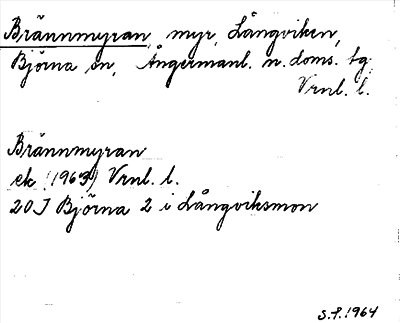 Brännmyran, myr, Långviken,
Björna sn, Ångermanl. n. doms. tg
Vrnl. l.
Brännmyran
ek (1963) Vrnl. l.
20 J Björna 2 i Långviksmon
S.P. 1964